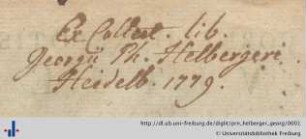 Ex Collect. lib.
Georgii Ph. Helbergeri
Heidelb. 1779.
http://dl.ub.uni-freiburg.de/diglit/prov_helberger_georg/0001
© Universitätsbibliothek Freiburg